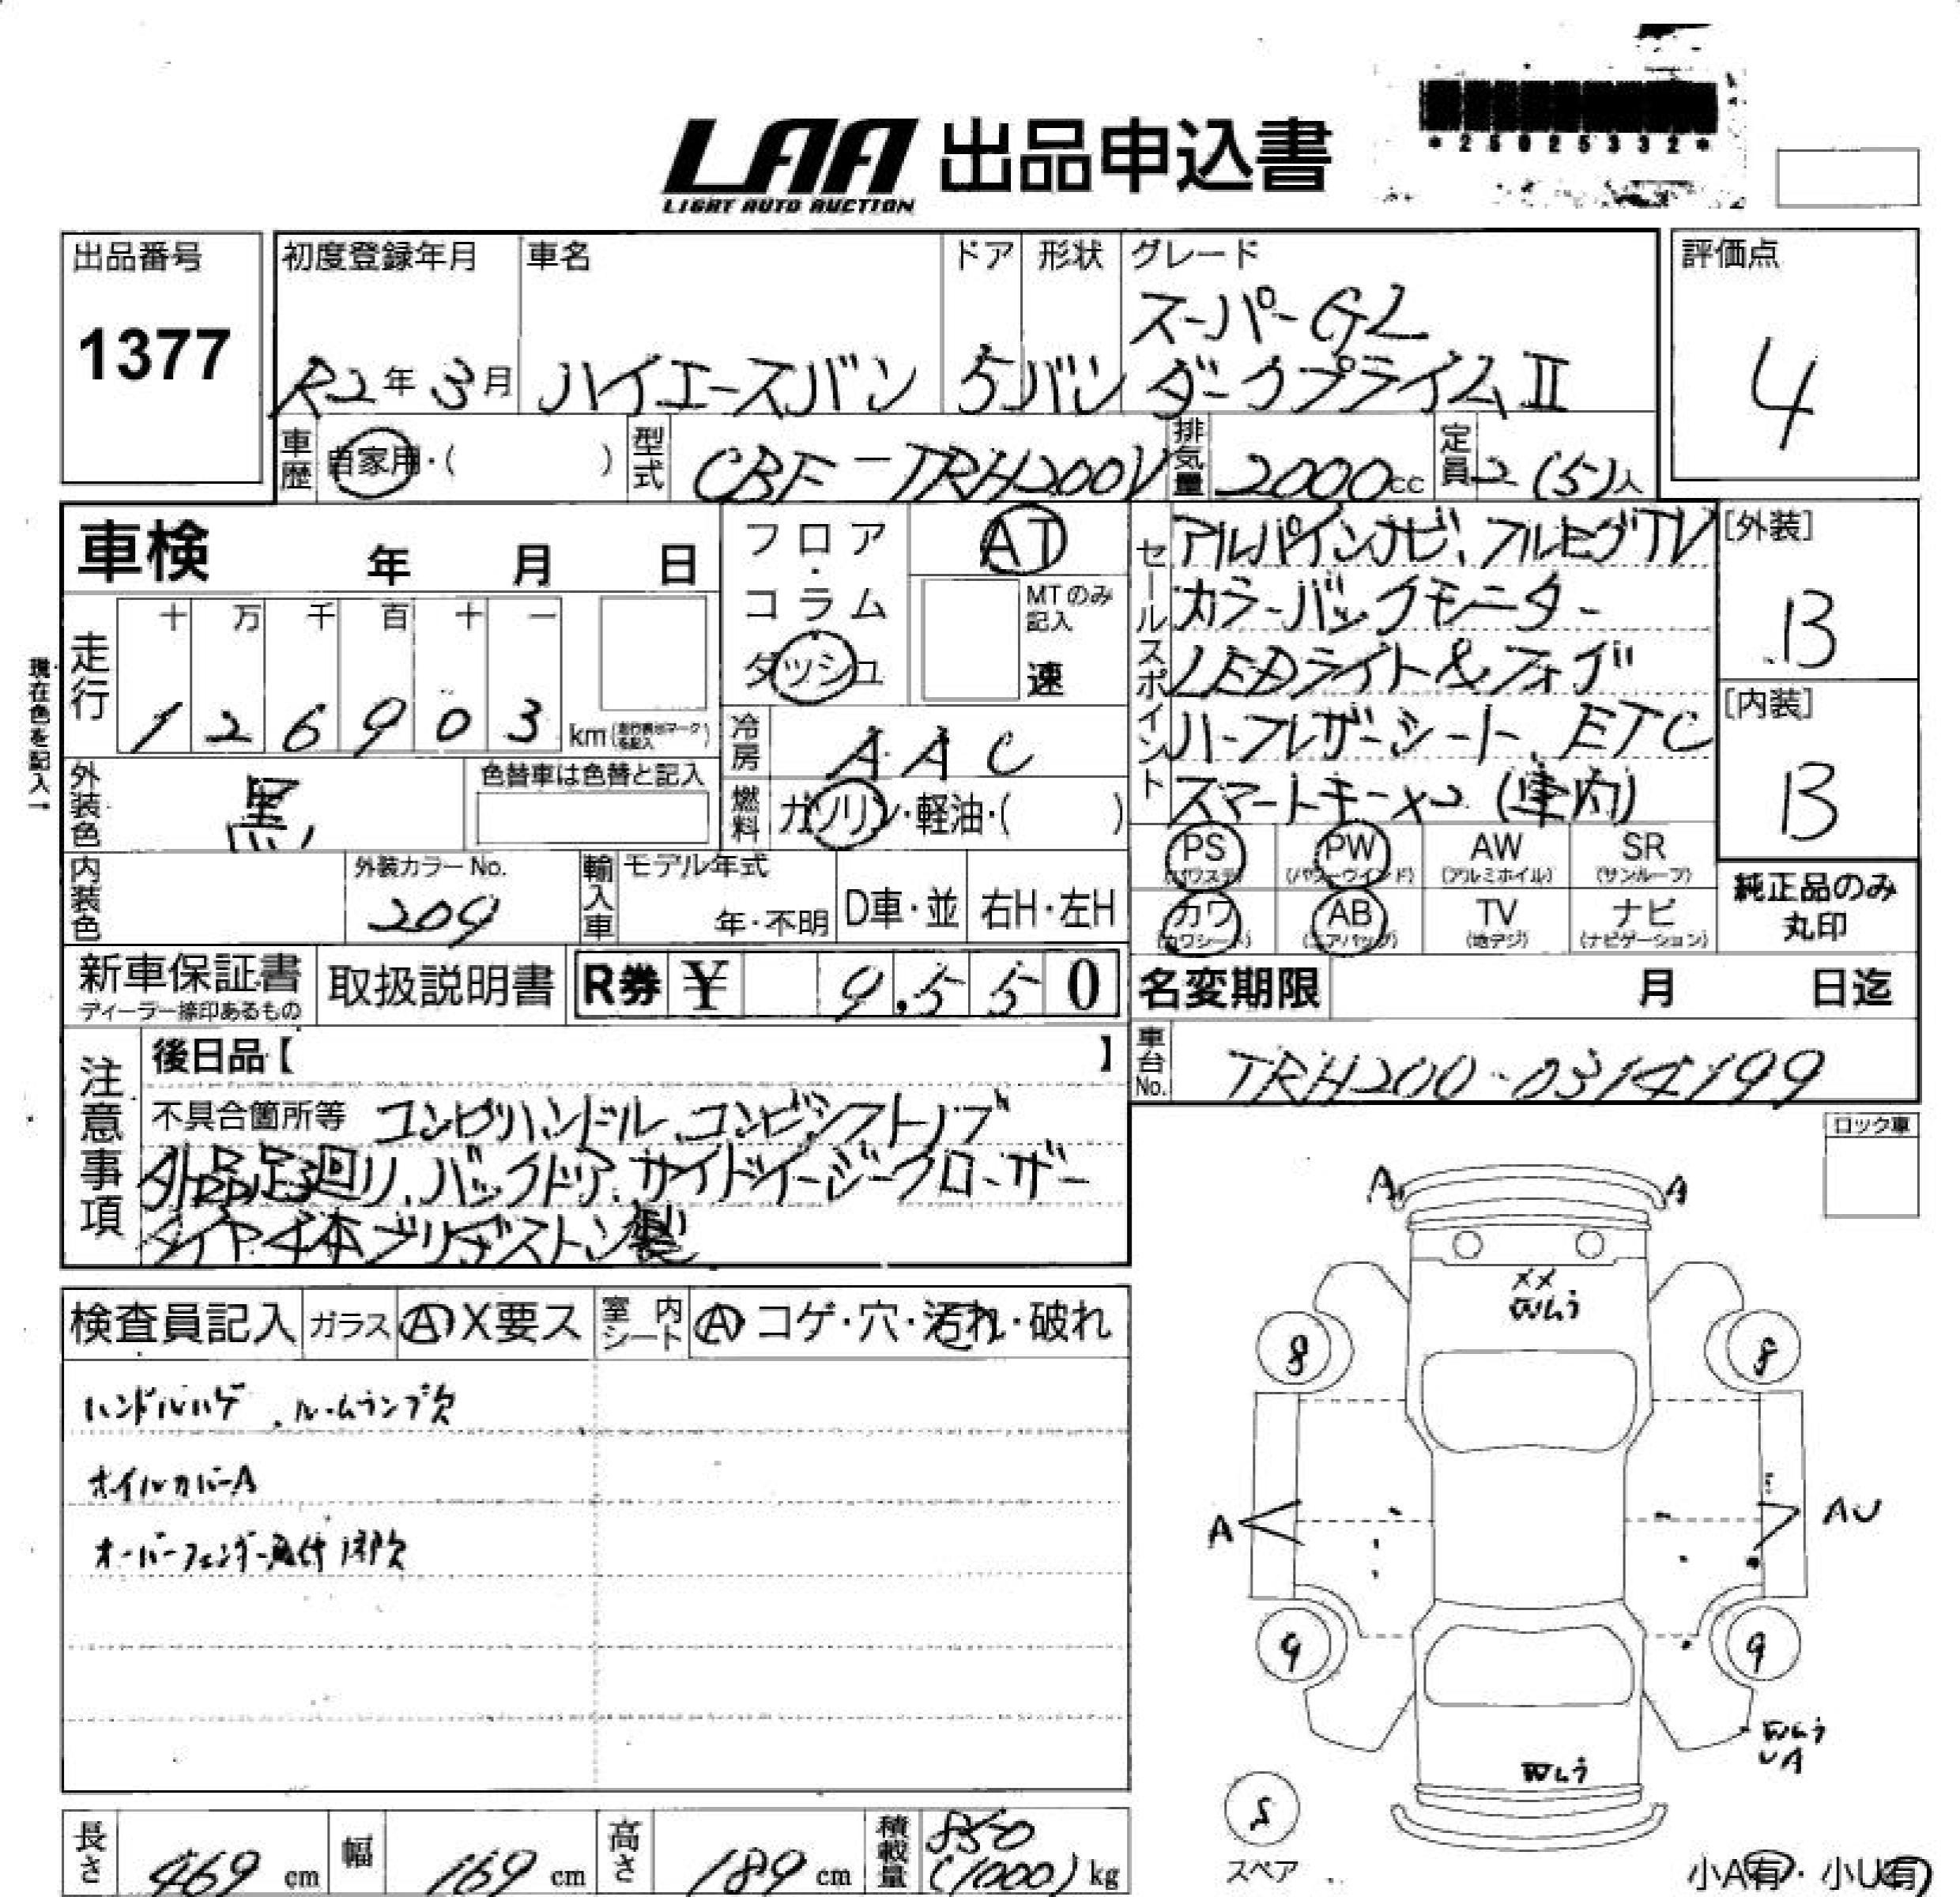 LAA 出品申込書
LIGHT AUTO AUCTION
*25025332*
出品番号
1377
初度登録年月
R2年 3月
車名
ハイエースバン
ドア
5
形状
バン
グレード
スーパーGL
ダークプライムⅡ
評価点
4
車歴
自家用・( )
型式
CBF-TRH200V
排気量
2000cc
定員
2(5)人
車検 年 月 日
フロア・コラム
ダッシュ
AT
MTのみ記入
速
セールスポイント
アルパインナビ、フルセグTV
カラーバックモニター
LEDライト&フォグ
ハーフレザーシート、ETC
スマートキー×2 (車内)
[外装]
B
[内装]
B
走行
十 万 千 百 十 一
1 2 6 9 0 3
km
現在色を記入→
冷房
AAC
燃料
ガソリン・軽油・( )
外装色
黒
色替車は色替と記入
内装色
外装カラーNo.
209
輸入車
モデル年式
年・不明
D車・並
右H・左H
PS
(パワステ)
PW
(パワーウインド)
AW
(アルミホイル)
SR
(サンルーフ)
カワ
(カワシート)
AB
(エアバッグ)
TV
(地デジ)
ナビ
(ナビゲーション)
純正品のみ
丸印
新車保証書
ディーラー捺印あるもの
取扱説明書
R券 ¥ 9,550
名変期限 月 日迄
車台No.
TRH200-0314199
注意事項
後日品【 】
不具合箇所等 コンビハンドル、コンビシフトノブ
外品足回り、バックドア、サイドイージークローザー
タイヤ4本ブリヂストン製
ロック車
検査員記入
ガラス
A X要ス
室内シート
A コゲ・穴・汚れ・破れ
ハンドルハゲ、ルームランプ欠
ホイルカバーA
A
A
XX
8
8
A
AU
9
9
UA
5
スペア
長さ
469cm
幅
169cm
高さ
189cm
積載量
850
(1000)kg
小A有・小U有